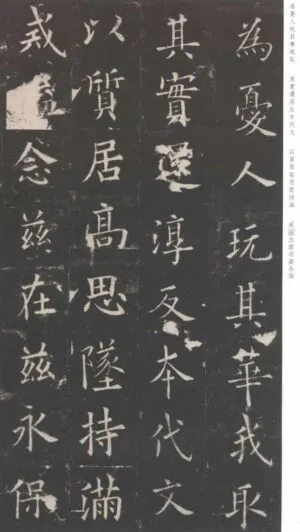 為憂人玩其華我取
其實還淳反本代文
以質居高思墜持滿
戒盈念茲在茲永保
為憂人玩其華我取 其實還淳反本代文 以質居高思墜持滿 戒盈念茲在茲永保